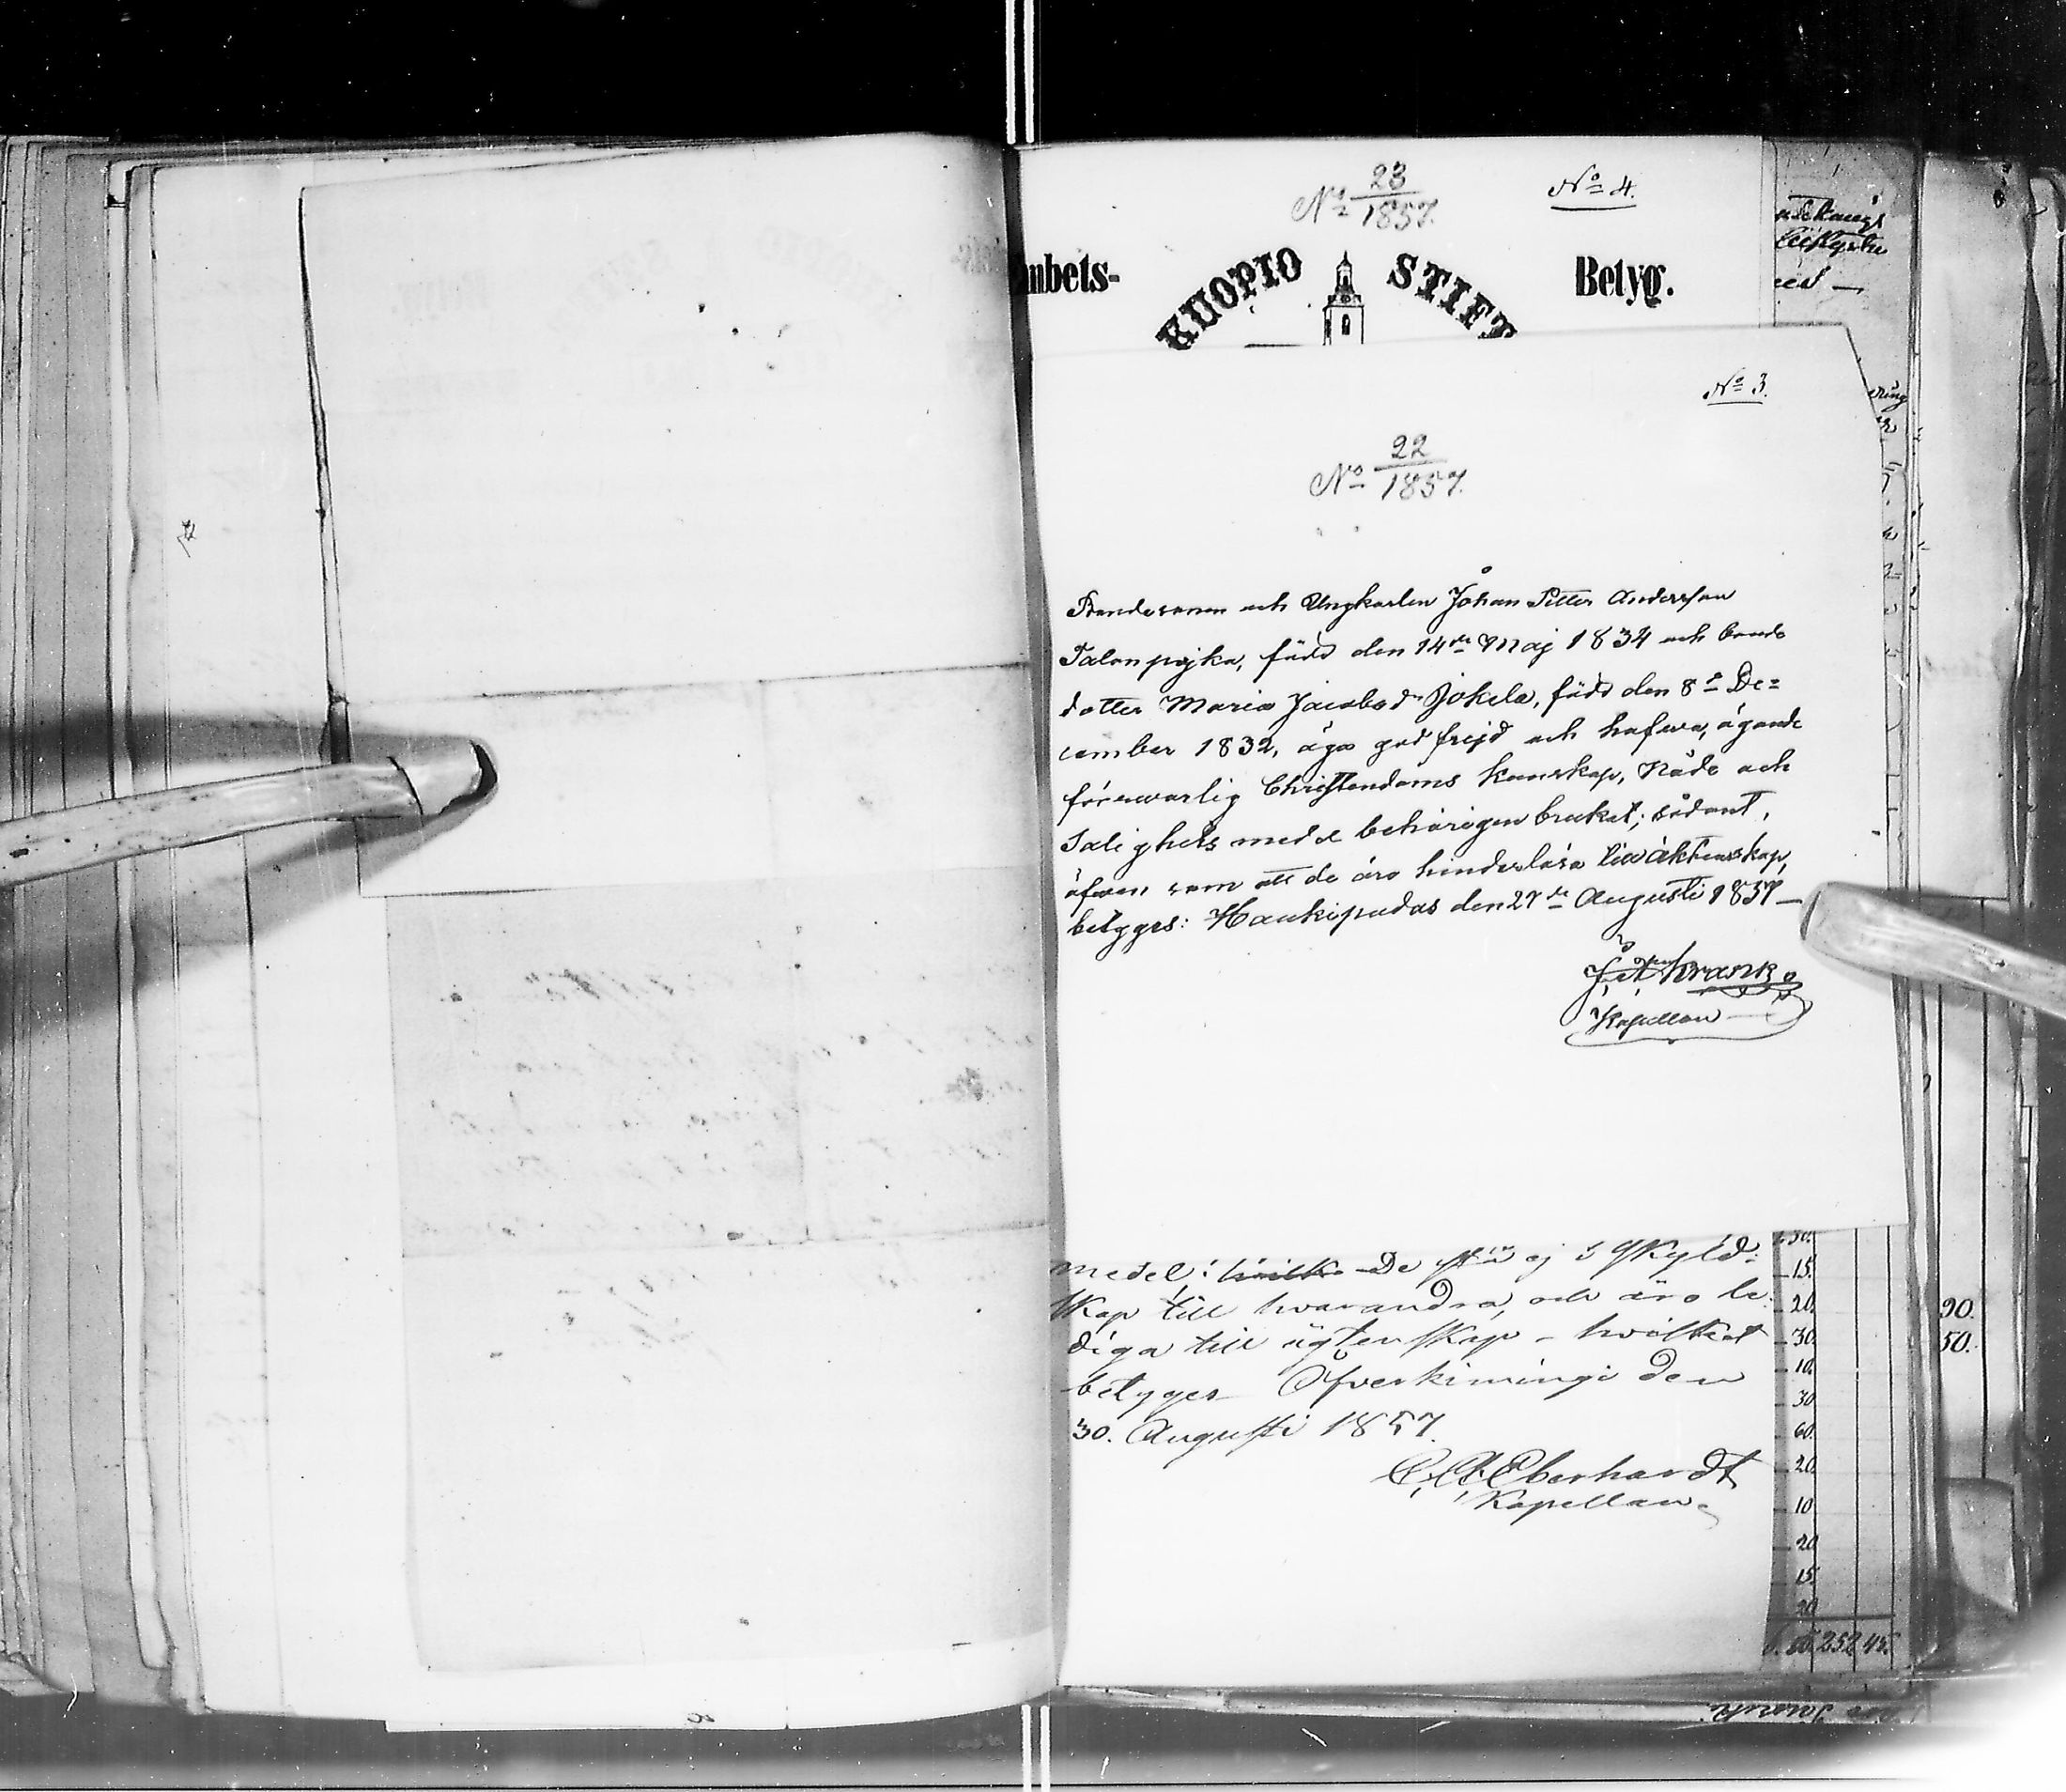 No 23/1857.
No 4.
mbets-
KUOPIO STIFT
Betyg.
No 3.
No 22/1857.
Bondesonen och Ungkarlen Johan Petter Andersson
Talonpojka, född den 14de Maj 1834 och bonde
dotter Maria Jacobsdr Jokela, född den 8e De=
cember 1832, äga god frejd och hafwa, ägande
förswarlig Christendoms kunskap, Nåde och
Salighets medel behörigen brukat; sådant,
äfwen som att de äro hinderlösa till äktenskap,
betyges: Haukipudas den 27de Augusti 1857
Krank
Kapellan
medel; De stå ej i Skyld=
skap till hvarandra, och äro le=
diga till ägtenskap – hvilket
betyges Öfverkiimingi den
30. Augusti 1857.
C. A. Eberhardt
Kapellan.
30.
15.
20.
30.
10.
30
60.
20.
10
20
15.
20
252 45.
90.
50.